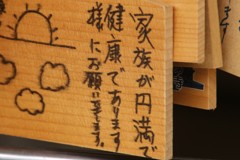 家族が円満で
健康であります
様にお願い致します。